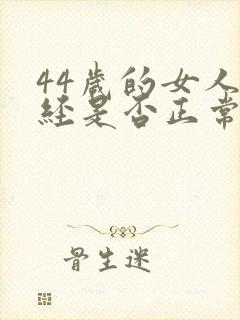 44岁的女人
经是否正常
骨生迷